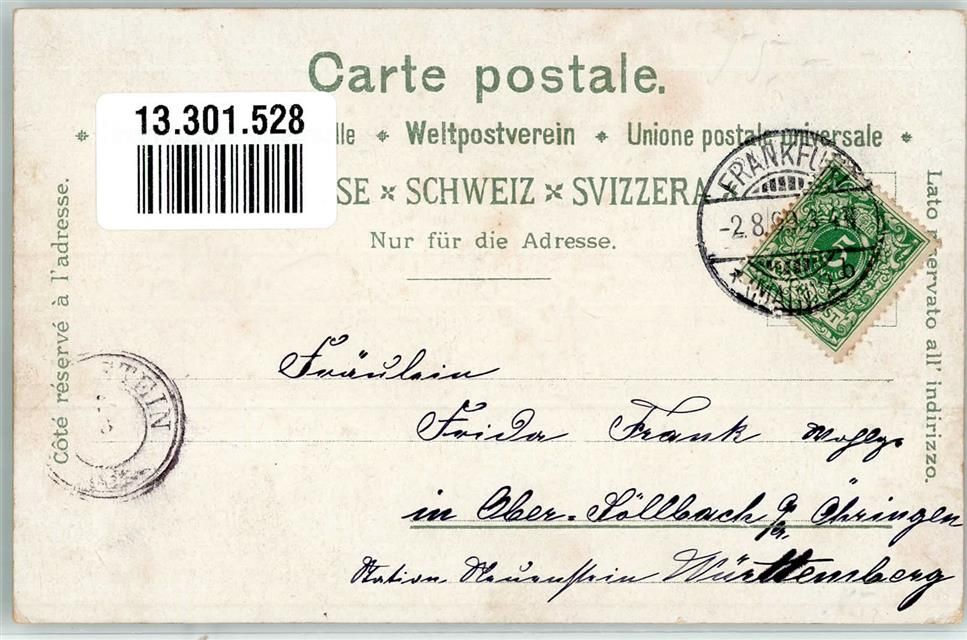 Carte postale.
13.301.528
lle * Weltpostverein * Unione postale universale *
SE × SCHWEIZ × SVIZZERA
Nur für die Adresse.
Côté réservé à l'adresse.
Lato riservato all' indirizzo.
FRANKFURT
-2.8.99.3-4N
(MAIN)
5
STEIN
Fräulein
Frida Frank Wohlg.
in Ober-Söllbach b/ Öhringen
Station Neuenstein Württemberg